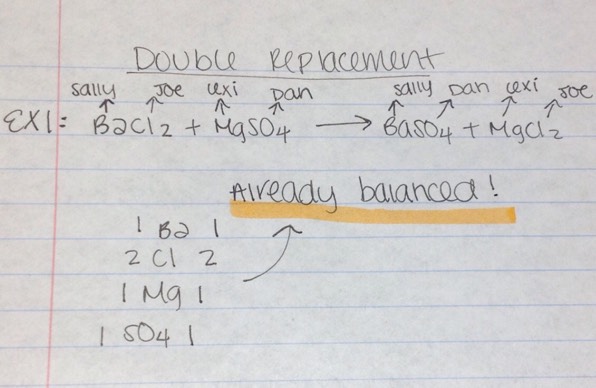 Double Replacement
Sally Joe Lexi Dan Sally Dan Lexi Joe
EX1: BaCl2 + MgSO4 → BaSO4 + MgCl2
Already balanced!
1 Ba 1
2 Cl 2
1 Mg 1
1 SO4 1